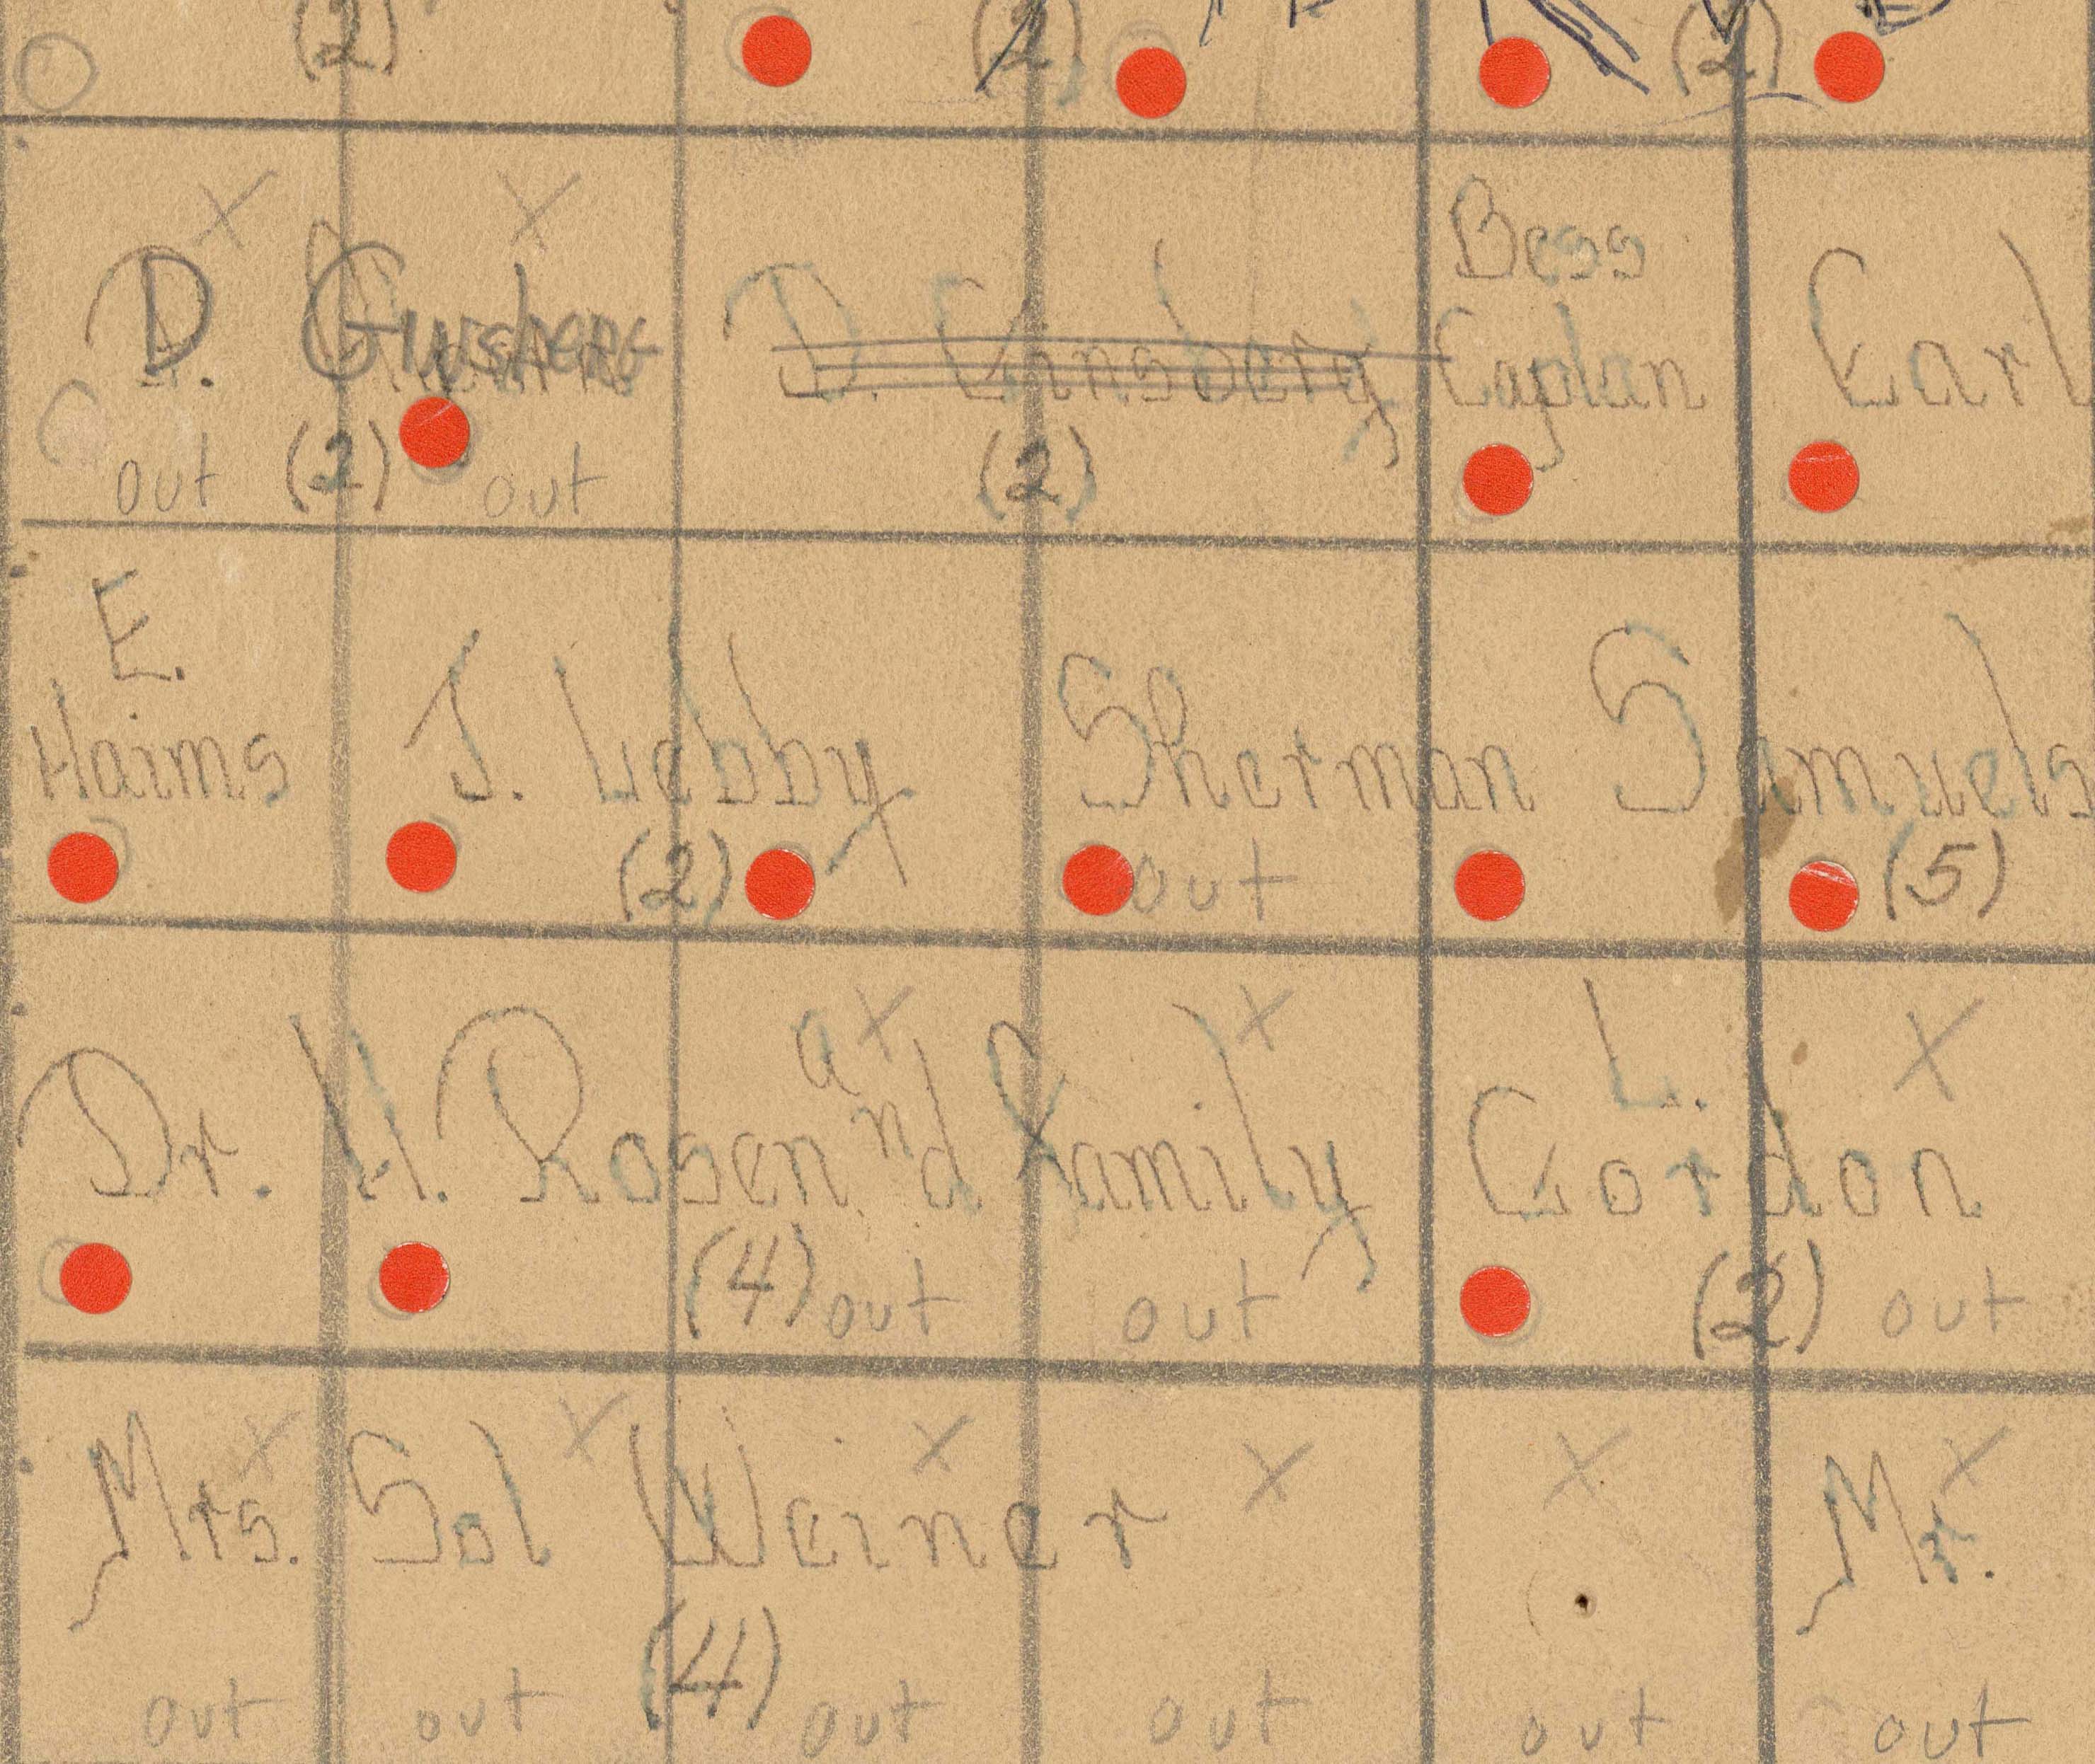 (2) (2) (2)
X X
Bess
D. D. Ginsberg Caplan Earl
out (2) out (2)
E.
Haims J. Lebby Sherman Samuels
(2) out (5)
X X L. X
Dr. H. Rosen and family Gordon
(4) out out (2) out
X X X X X X
Mrs. Sol Weiner Mr.
(4)
out out out out out out